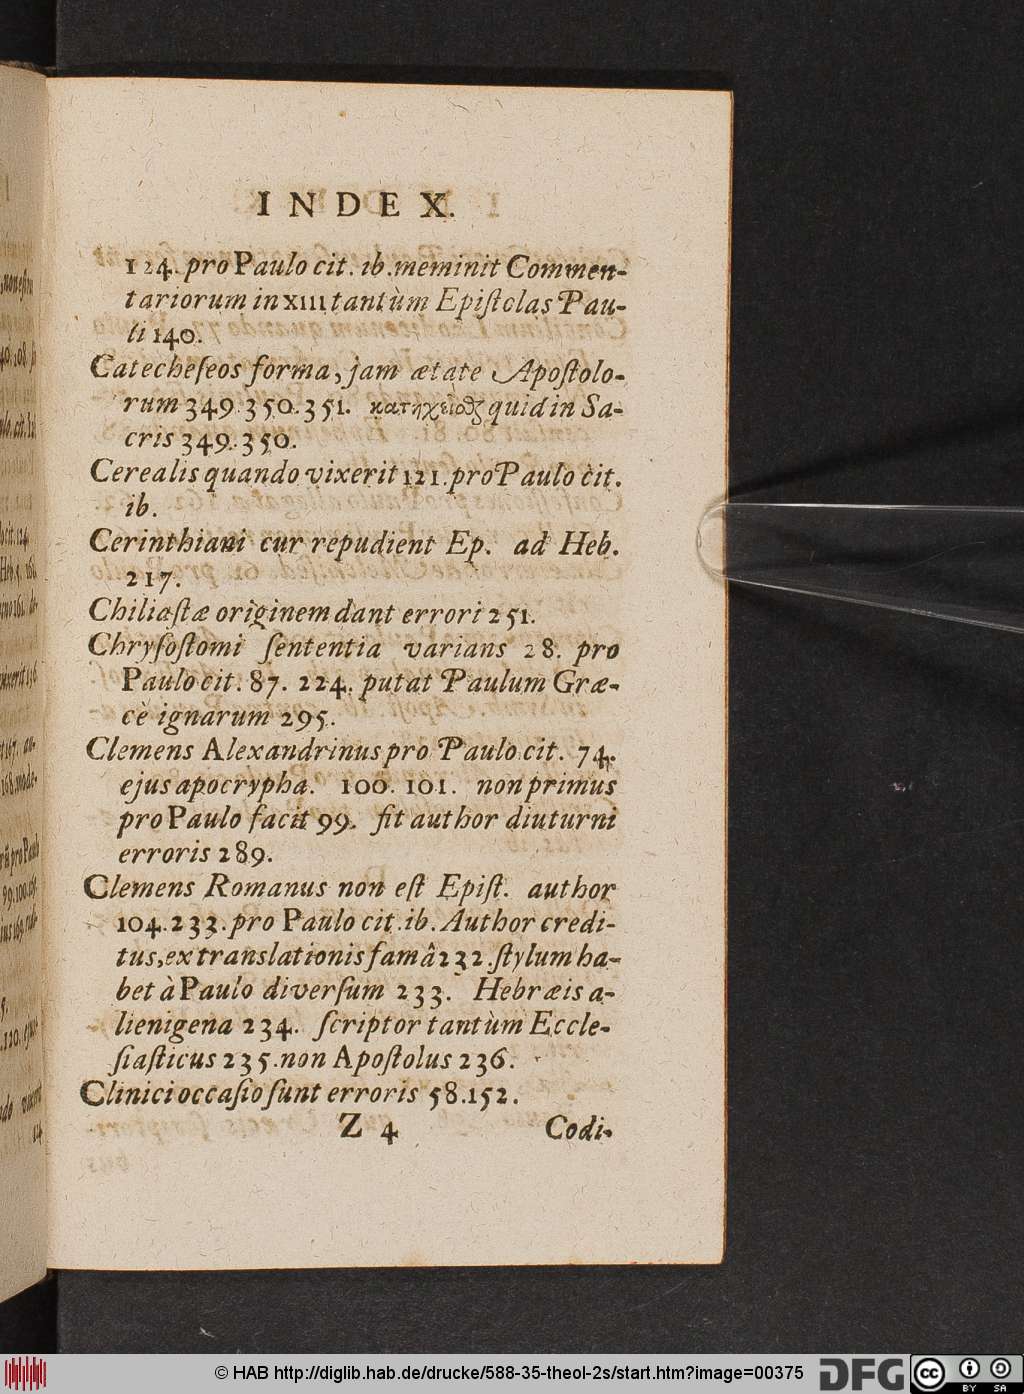 INDEX.
124. pro Paulo cit. ib. meminit Commen-
tariorum in XIII tantùm Epiſtolas Pau-
li 140.
Catecheſeos forma, jam ætate Apoſtolo-
rum 349. 350. 351. κατηχεῖσθζ quid in Sa-
cris 349. 350.
Cerealis quando vixerit 121. pro Paulo cit.
ib.
Cerinthiani cur repudient Ep. ad Heb.
217.
Chiliaſtæ originem dant errori 251.
Chryſoſtomi ſententia varians 28. pro
Paulo cit. 87. 224. putat Paulum Græ-
cè ignarum 295.
Clemens Alexandrinus pro Paulo cit. 74.
ejus apocrypha. 100. 101. non primus
pro Paulo facit 99. fit author diuturni
erroris 289.
Clemens Romanus non eſt Epiſt. author
104. 233. pro Paulo cit. ib. Author credi-
tus, ex translationis famâ 232. ſtylum ha-
bet à Paulo diverſum 233. Hebræis a-
lienigena 234. ſcriptor tantùm Eccle-
ſiaſticus 235. non Apoſtolus 236.
Clinici occaſio ſunt erroris 58. 152.
Z 4 Codi-
© HAB http://diglib.hab.de/drucke/588-35-theol-2s/start.htm?image=00375 DFG cc BY SA